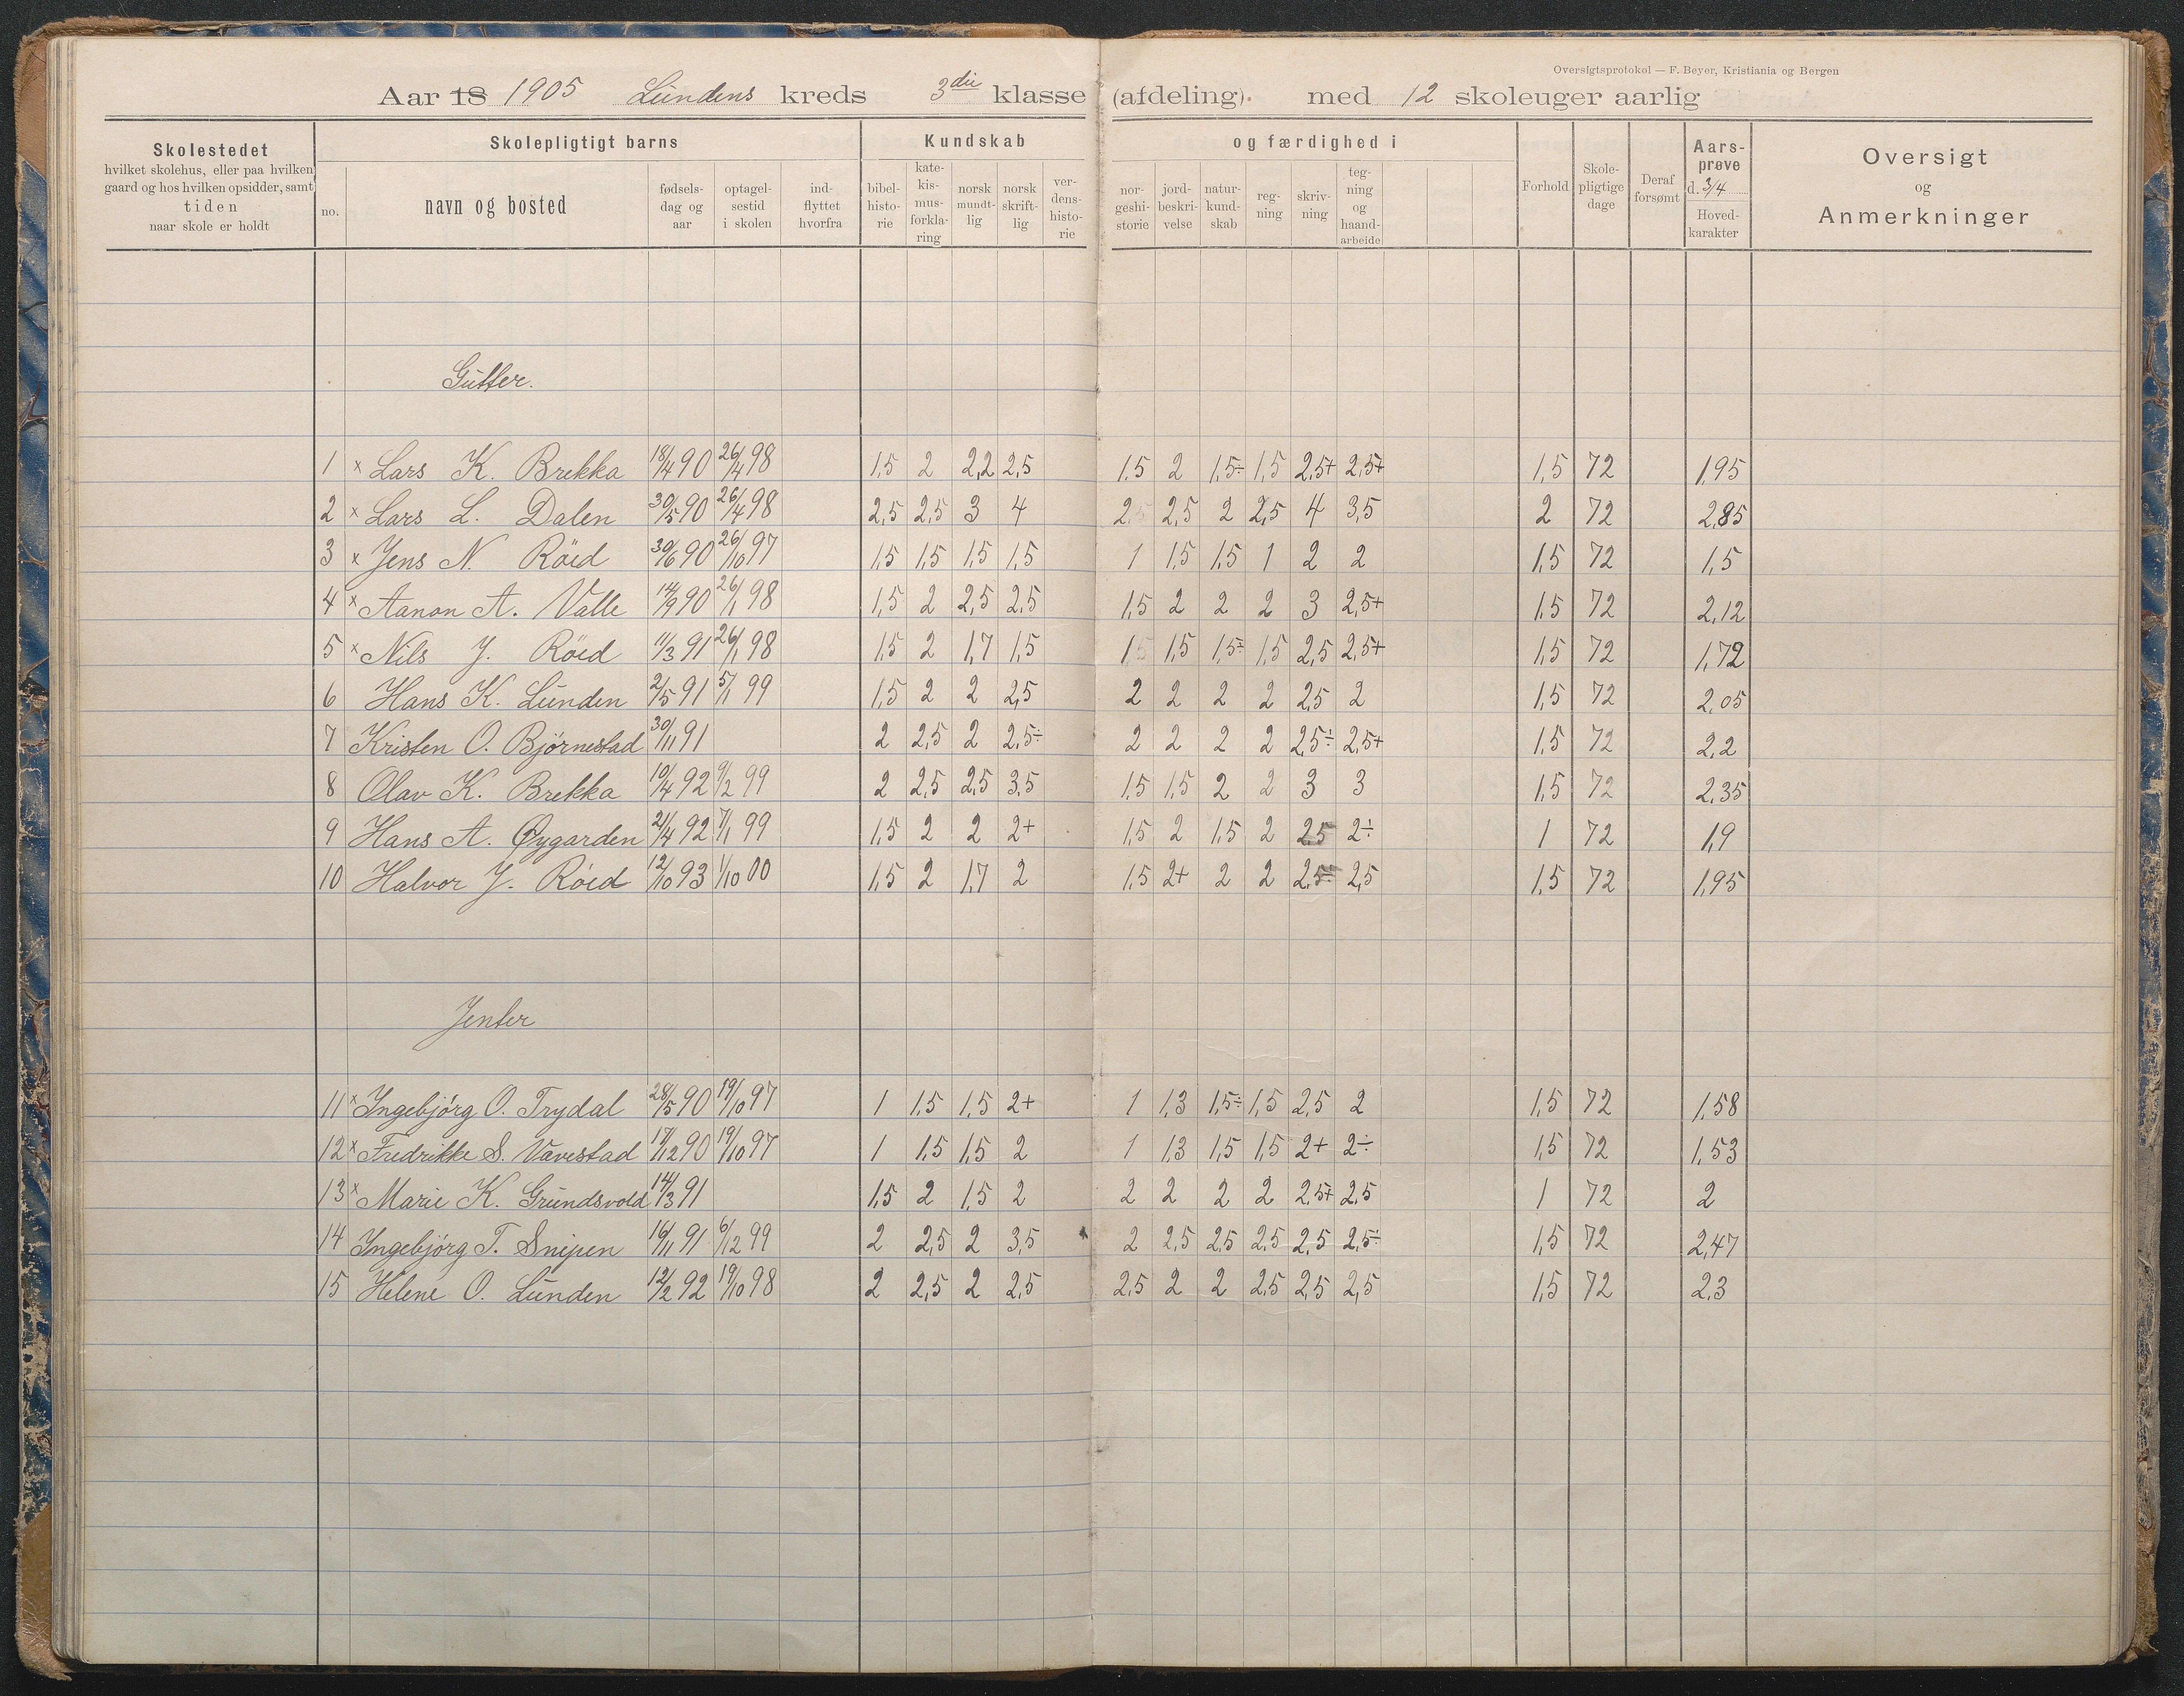 Oversigtsprotokol — F. Beyer, Kristiania og Bergen
Aar 18 1905 Lundens kreds 3die klasse (afdeling). med 12 skoleuger aarlig
Skolestedet hvilket skolehus, eller paa hvilken gaard og hos hvilken opsidder, samt tiden naar skole er holdt
Skolepligtigt barns
no. navn og bosted fødsels-dag og aar optagel-sestid i skolen ind-flyttet hvorfra
Kundskab og færdighed i
bibel-histo-rie kate-kis-mus-forkla-ring norsk mundt-lig norsk skrift-lig ver-dens-histo-rie nor-geshi-storie jord-beskri-velse natur-kund-skab reg-ning skriv-ning teg-ning og haand-arbeide
Forhold Skole-pligtige dage Deraf forsømt Aars-prøve d. 3/4 Hoved-karakter
Oversigt og Anmerkninger
Gutter.
1 x Lars K. Brekka 18/4 90 26/4 98 1,5 2 2,2 2,5 1.5 2 1,5÷ 1,5 2,5+ 2,5+ 1,5 72 1,95
2 x Lars L. Dalen 30/5 90 26/4 98 2,5 2,5 3 4 2,5 2,5 2 2,5 4 3,5 2 72 2,85
3 x Jens N. Röed 30/6 90 26/10 97 1,5 1,5 1,5 1,5 1 1,5 1,5 1 2 2 1,5 72 1,5
4 x Aanon A. Valle 14/9 90 26/1 98 1,5 2 2,5 2,5 1,5 2 2 2 3 2,5+ 1,5 72 2,12
5 x Nils J. Röed 11/3 91 26/1 98 1,5 2 1,7 1,5 1,5 1,5 1,5÷ 1,5 2,5 2,5+ 1,5 72 1,72
6 Hans K. Lunden 2/5 91 5/1 99 1,5 2 2 2,5 2 2 2 2 2,5 2 1,5 72 2,05
7 Kristen O. Björnestad 30/11 91 2 2,5 2 2,5÷ 2 2 2 2 2,5÷ 2,5+ 1,5 72 2,2
8 Olav K. Brekka 10/4 92 9/2 99 2 2,5 2,5 3,5 1,5 1,5 2 2 3 3 1,5 72 2,35
9 Hans A. Øygarden 21/4 92 7/1 99 1,5 2 2 2+ 1,5 2 1,5 2 2,5 2÷ 1 72 1,9
10 Halvor J. Röed 12/10 93 1/10 00 1,5 2 1,7 2 1,5 2+ 2 2 2,5÷ 2,5 1,5 72 1,95
Jenter
11 x Ingebjörg O. Trydal 28/5 90 19/10 97 1 1,5 1,5 2+ 1 1,3 1,5÷ 1,5 2,5 2 1,5 72 1,58
12 x Fredrikke S. Vavestad 17/12 90 19/10 97 1 1,5 1,5 2 1 1,3 1,5 1,5 2+ 2÷ 1,5 72 1,53
13 x Marie K. Grundsvold 14/3 91 1,5 2 1,5 2 2 2 2 2 2,5+ 2,5 1 72 2
14 Ingebjörg T. Snipen 16/11 91 6/12 99 2 2,5 2 3,5 2 2,5 2,5 2,5 2,5 2,5÷ 1,5 72 2,47
15 Helene O. Lunden 12/2 92 19/10 98 2 2,5 2 2,5 2,5 2 2 2,5 2,5 2,5 1,5 72 2,3